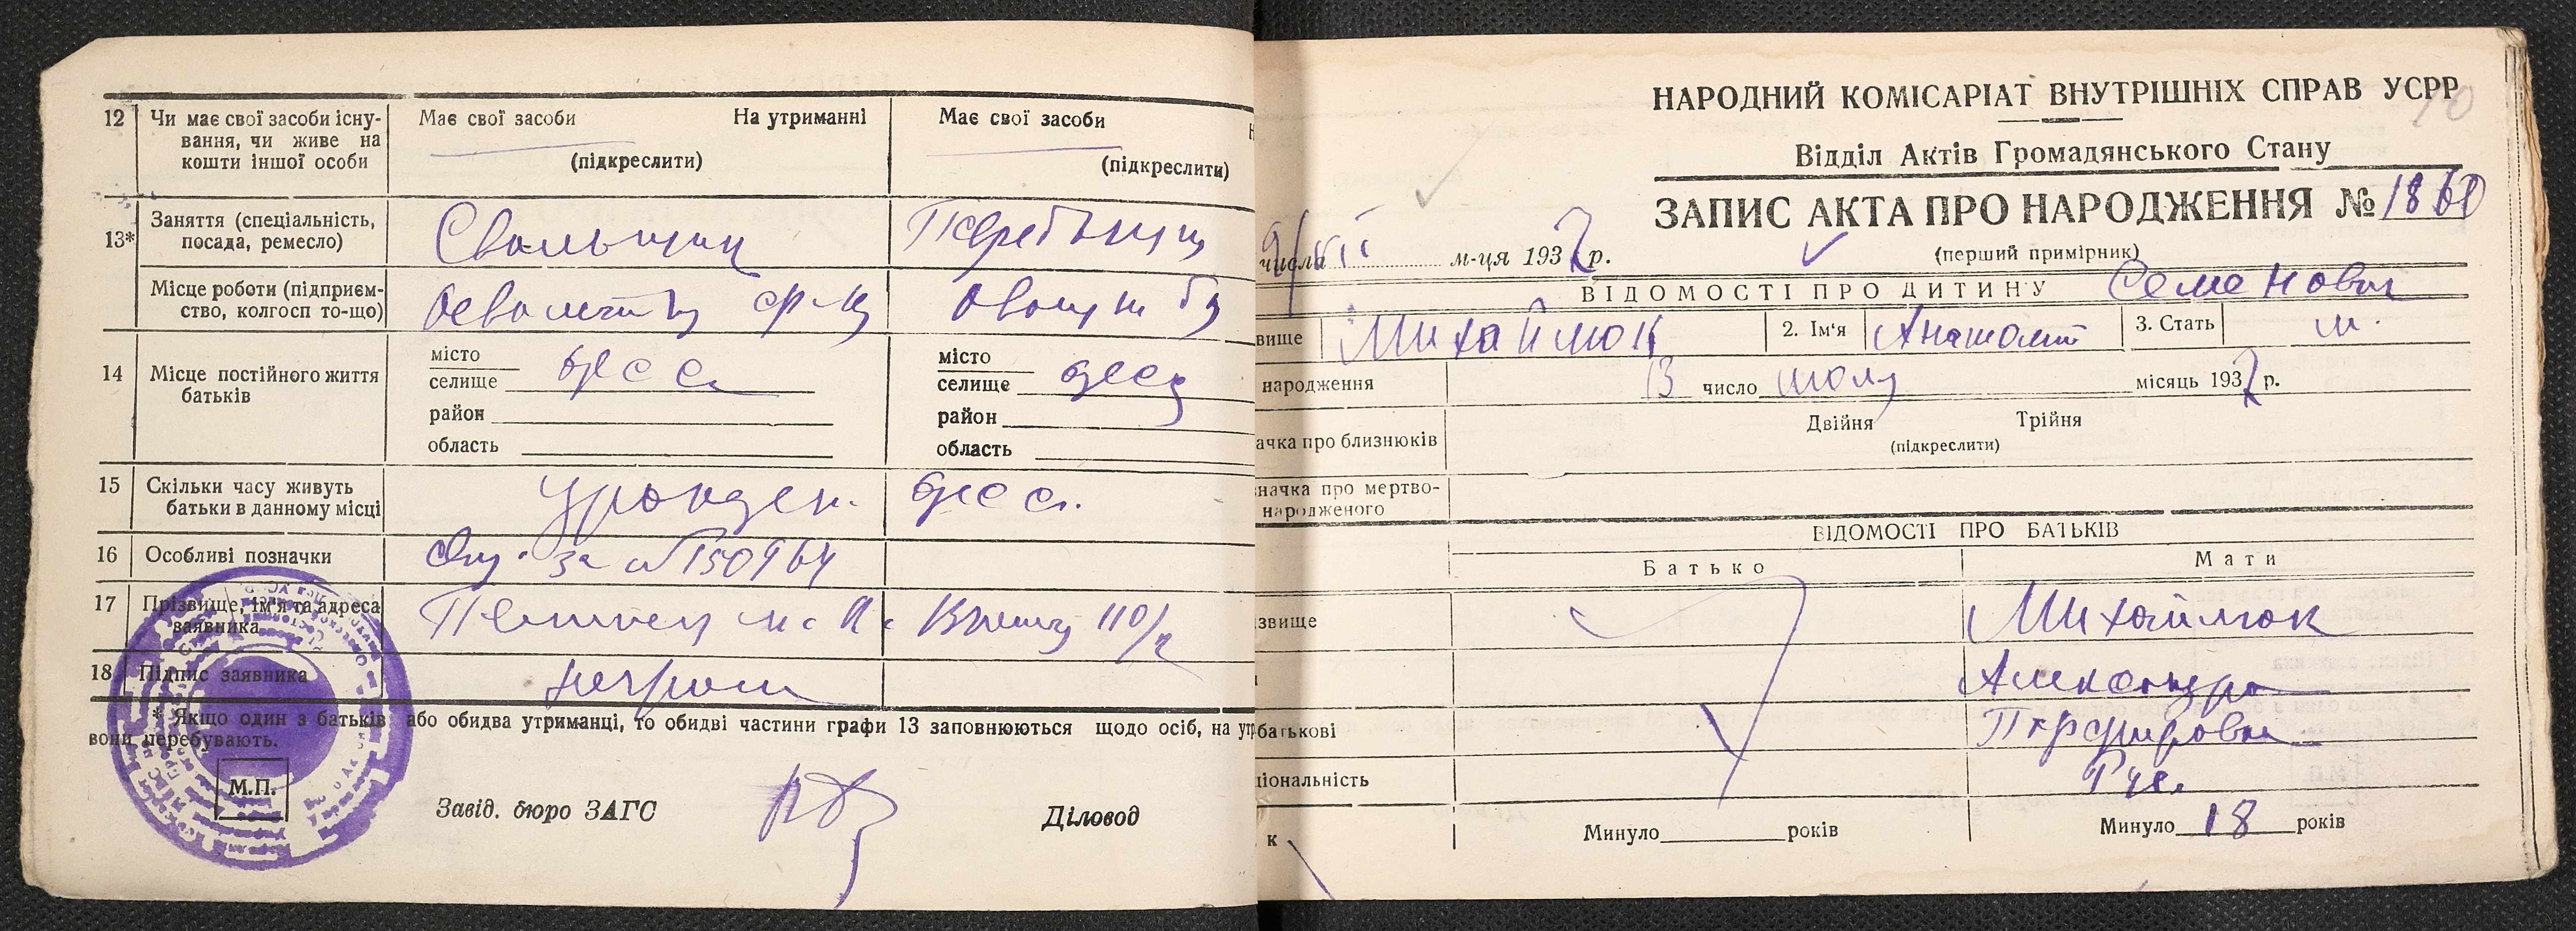 12 Чи має свої засоби існу-
вання, чи живе на
кошти іншої особи
Має свої засоби На утриманні
(підкреслити)
Має свої засоби Н
(підкреслити)
13* Заняття (спеціальність,
посада, ремесло)
Місце роботи (підприєм-
ство, колгосп то-що)
14 Місце постійного життя
батьків
місто
селище Одесса
район
область
місто
селище Одесса
район
область
15 Скільки часу живуть
батьки в данному місці
урожден. Одесс.
16 Особливі позначки
за № 150964
17 Прізвище, ім'я та адреса
заявника
110/2
18 Підпис заявника
* Якщо один з батьків або обидва утриманці, то обидві частини графи 13 заповнюються щодо осіб, на ут
вони перебувають.
М.П.
Завід. бюро ЗАГС
Діловод
10
НАРОДНИЙ КОМІСАРІАТ ВНУТРІШНІХ СПРАВ УСРР
Відділ Актів Громадянського Стану
ЗАПИС АКТА ПРО НАРОДЖЕННЯ № 1860
(перший примірник)
9/VII числа м-ця 1937 р.
ВІДОМОСТІ ПРО ДИТИНУ Семенович
вище Михайлюк 2. Ім'я Анатолий 3. Стать м.
народження 13 число июля місяць 1937 р.
ачка про близнюків
Двійня Трійня
(підкреслити)
значка про мертво-
народженого
ВІДОМОСТІ ПРО БАТЬКІВ
Батько Мати
звище Михайлюк
Александра
батькові Порфировна
ціональність Рус.
к Минуло років Минуло 18 років